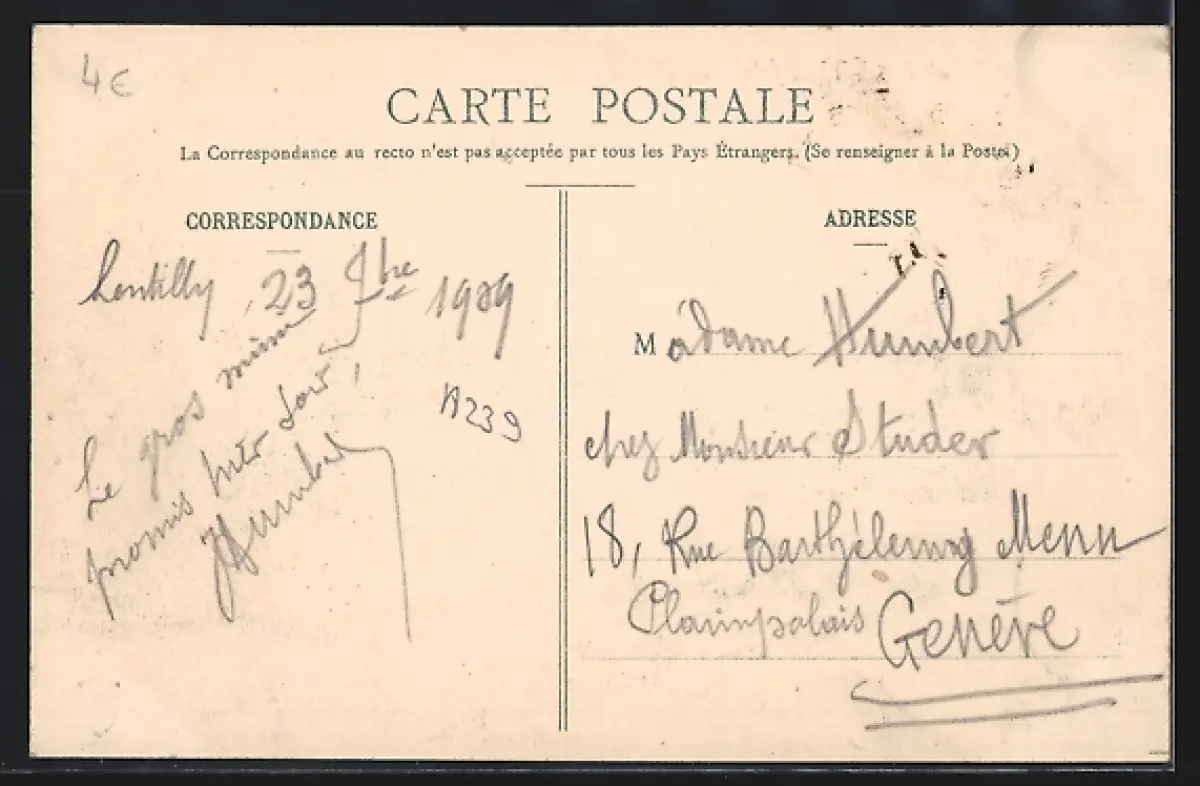 4€
CARTE POSTALE
La Correspondance au recto n'est pas acceptée par tous les Pays Étrangers. (Se renseigner à la Poste)
CORRESPONDANCE
Lentilly, 23 9bre 1909
Le gros mimi
promis hier soir !
JHumbert
A239
ADRESSE
Madame Humbert
chez Monsieur Studer
18, Rue Barthélemy Menn
Plainpalais Genève